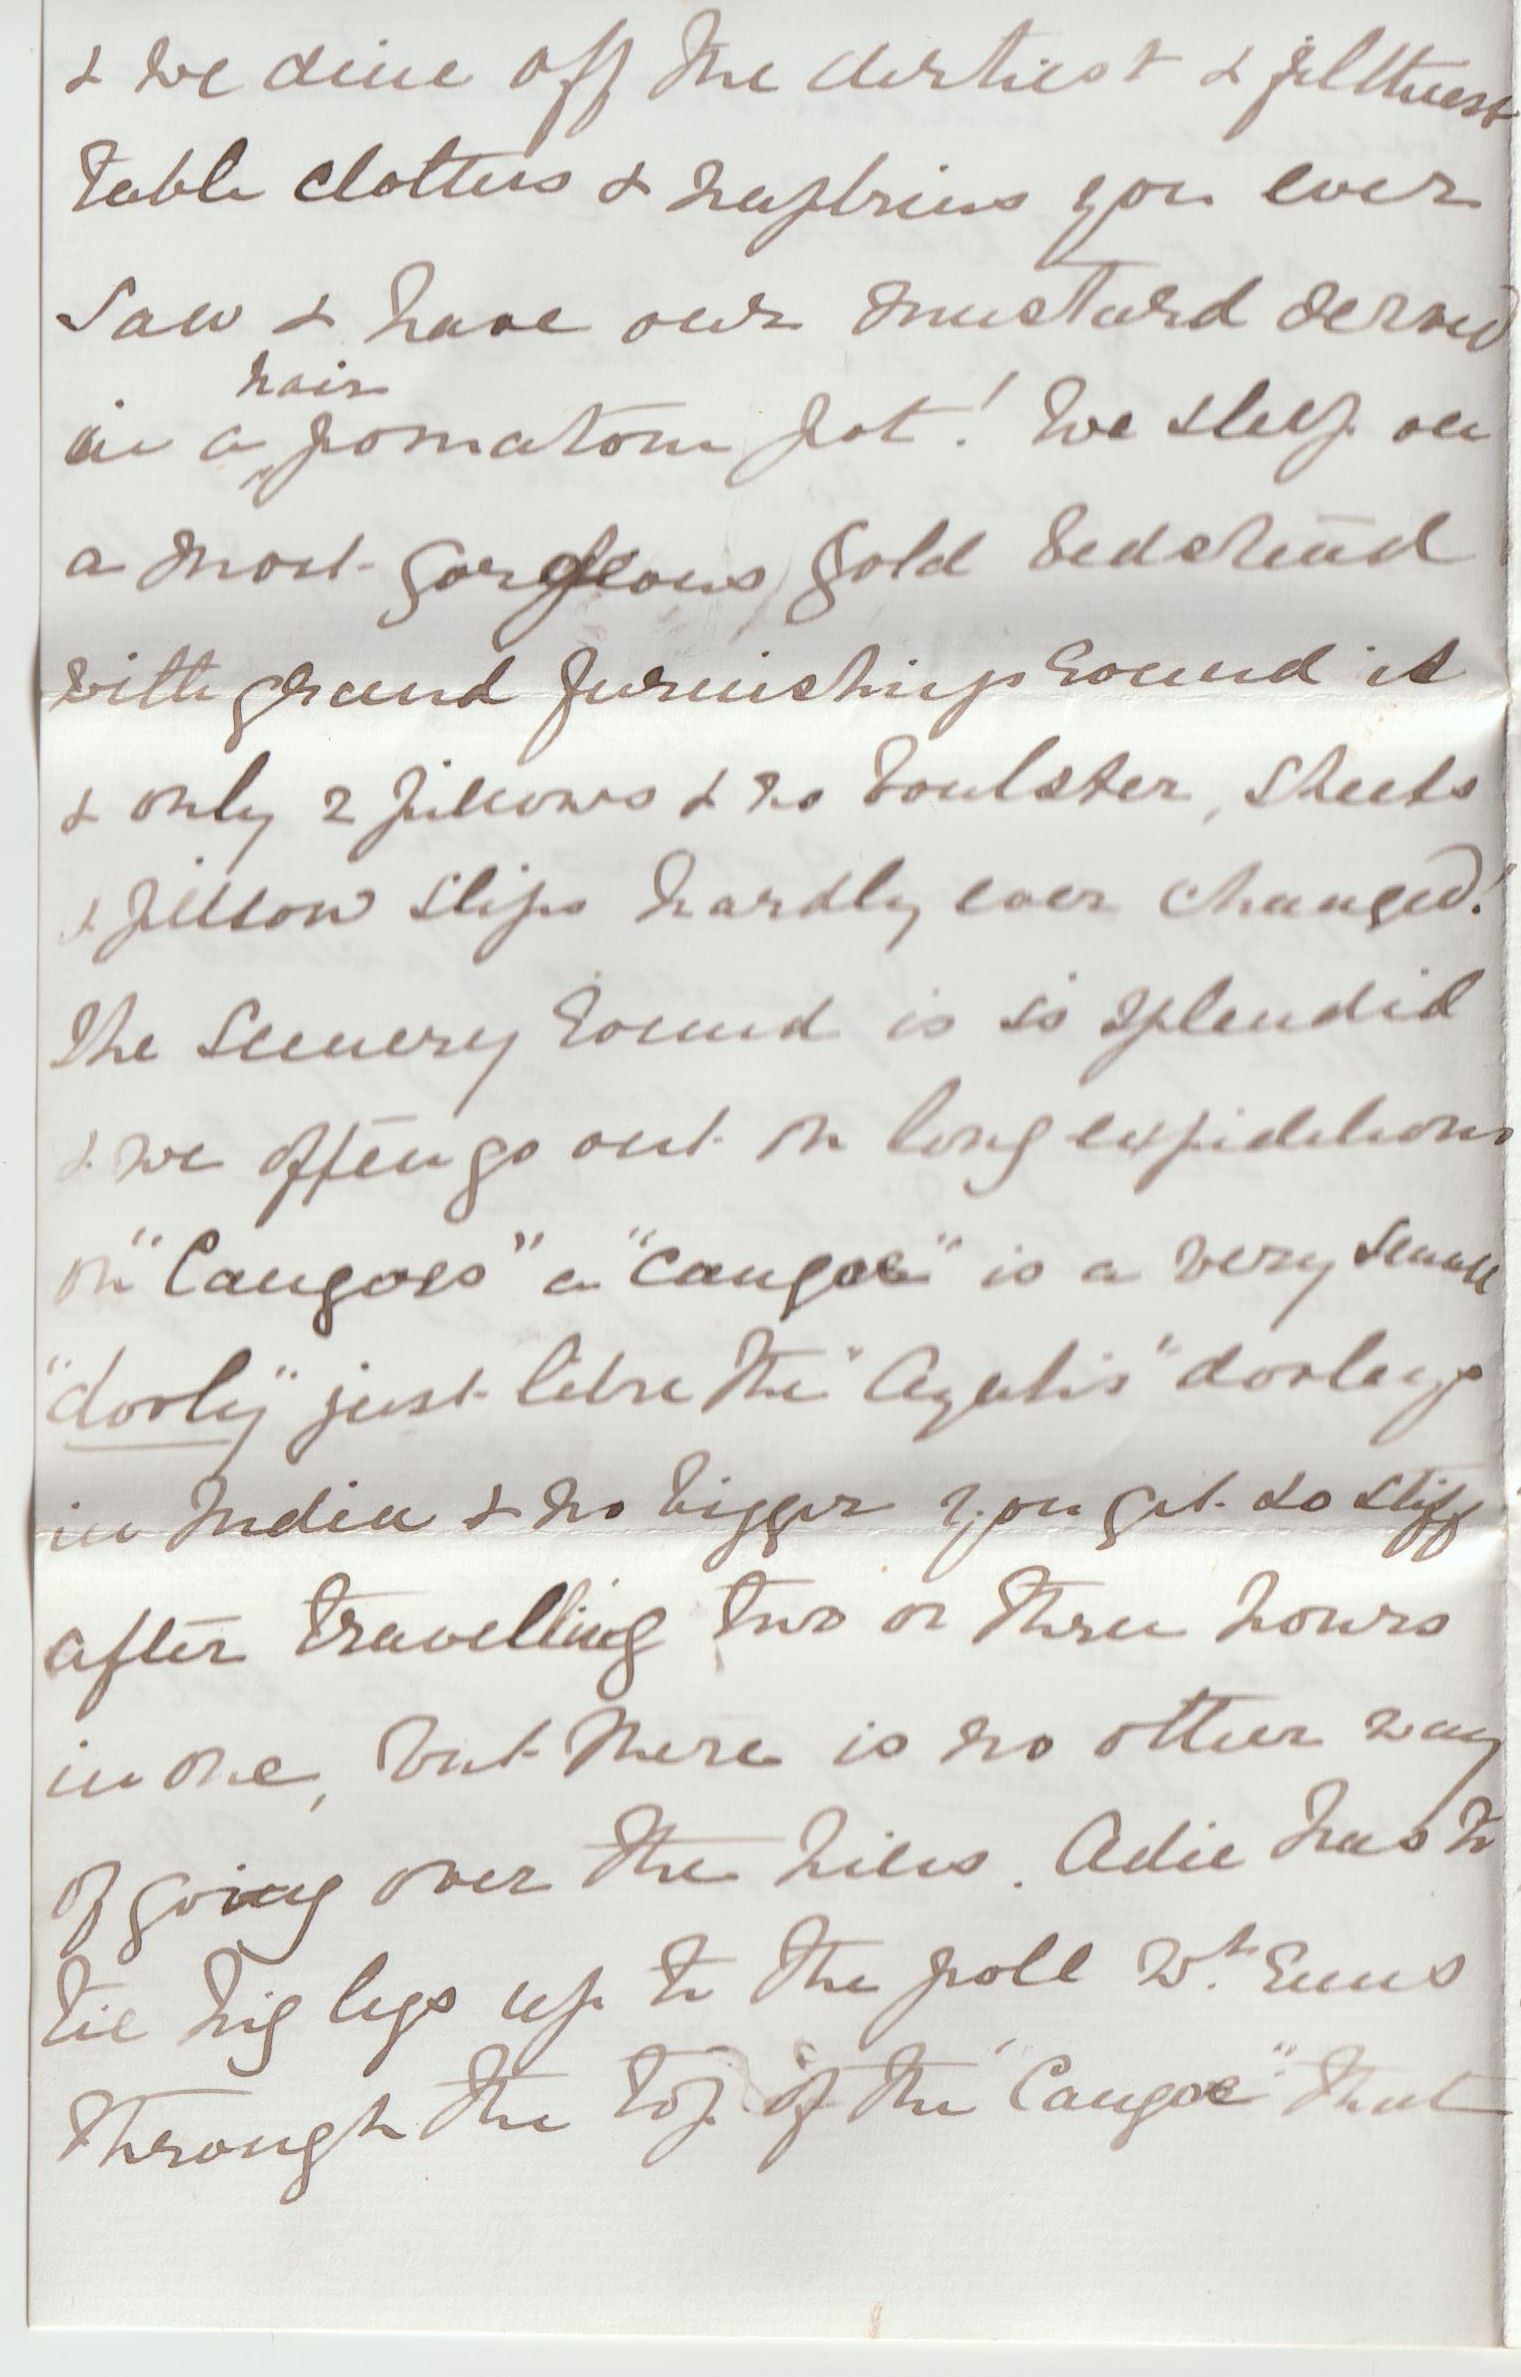 & we dine off the dirtiest & filthiest
table clothes & napkins you ever
saw & have our mustard served
hair
in a pomatom pot! We sleep on
a most gorgeous gold bedstead
with grand furnishings round it
& only 2 pillows & no boulster, sheets
& pillow slips hardly ever changed!
The scenery round is so splendid
& we often go out on long expiditions
on "Cangoes" a "Cangoe" is a very small
"dooly" just like the "Ayahs" dooleys
in India & no bigger & you get so stiff
after travelling two or three hours
in one, but there is no other way
of going over the hills. Adie has to
tie his legs up to the poll wh. runs
through the top of the "Cangoe" that